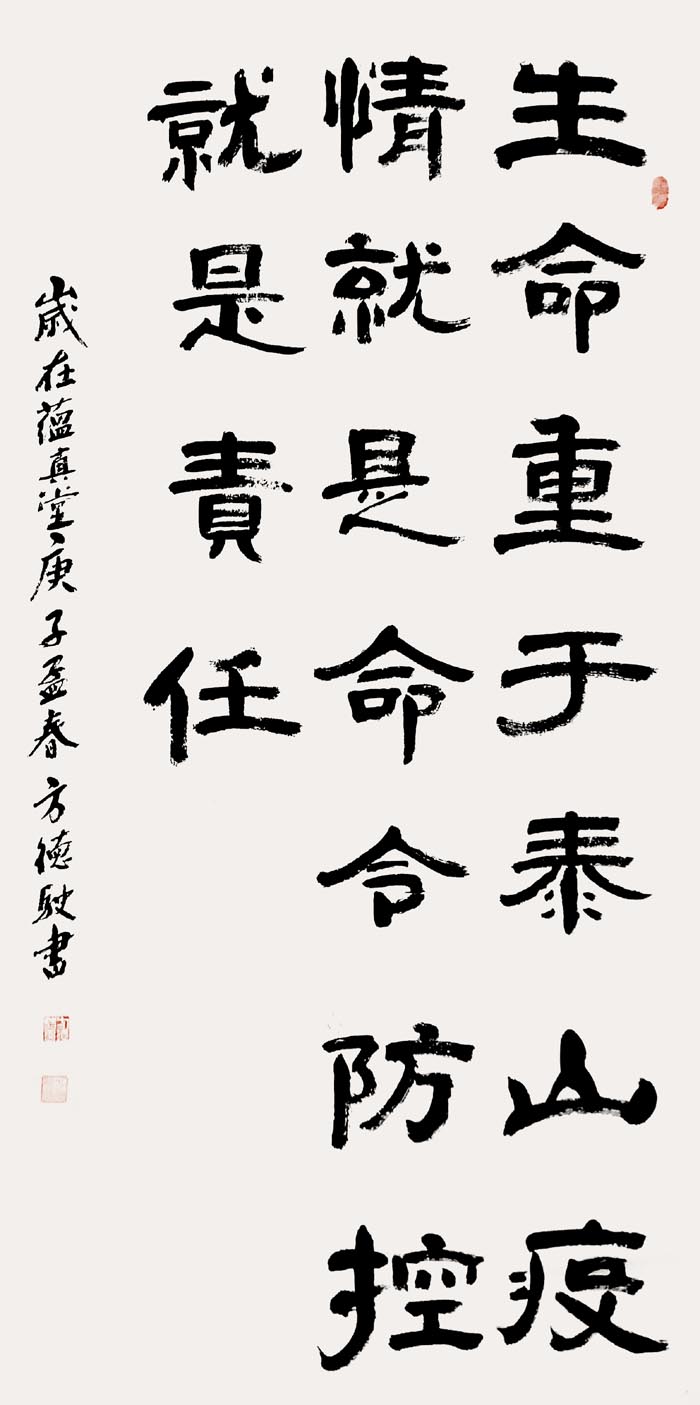 生命重于泰山疫
情就是命令防控
就是責任
歲在蘊真堂庚子孟春方德駛書